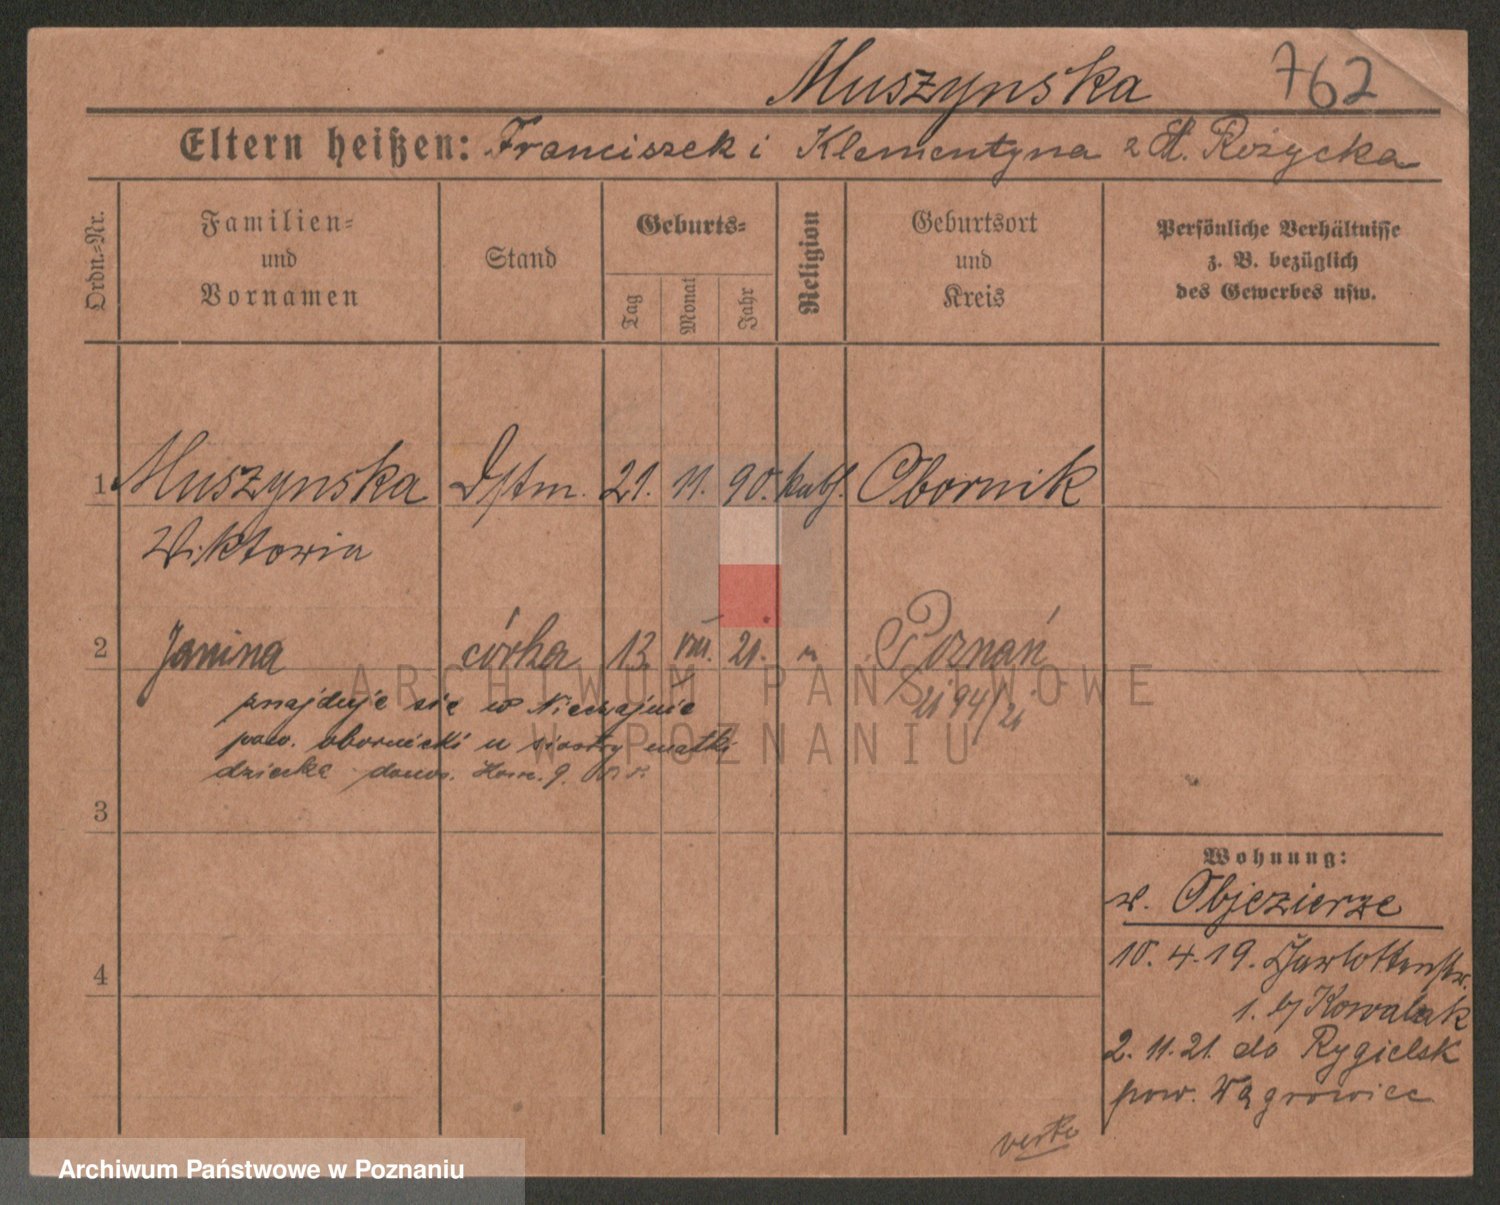 Muszynska 762
Eltern heißen: Franciszek i Klementyna z d. Rożycka
Ordn.-Nr.
Familien-
und
Vornamen
Stand
Geburts-
Tag
Monat
Jahr
Religion
Geburtsort
und
Kreis
Persönliche Verhältnisse
z. B. bezüglich
des Gewerbes usw.
1 Muszynska Dstm. 21. 11. 90. kath. Obornik
Wiktoria
2 Janina córka 13. VIII. 21. " Poznań
znajduje się w Nieczajnie
pow. obornicki u siostry matki
dziecka
3
4
Wohnung:
z. Objezierze
10. 4. 19. Charlottenstr.
1. b/ Kowalak
2. 11. 21. do Rygielsk
pow. Wągrowiec
verte
ARCHIWUM PAŃSTWOWE
W POZNANIU
Archiwum Państwowe w Poznaniu